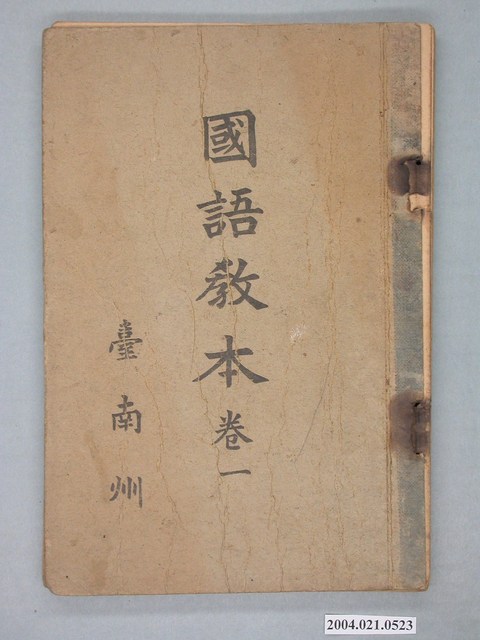 國語教本卷一
臺南州
2004.021.0523